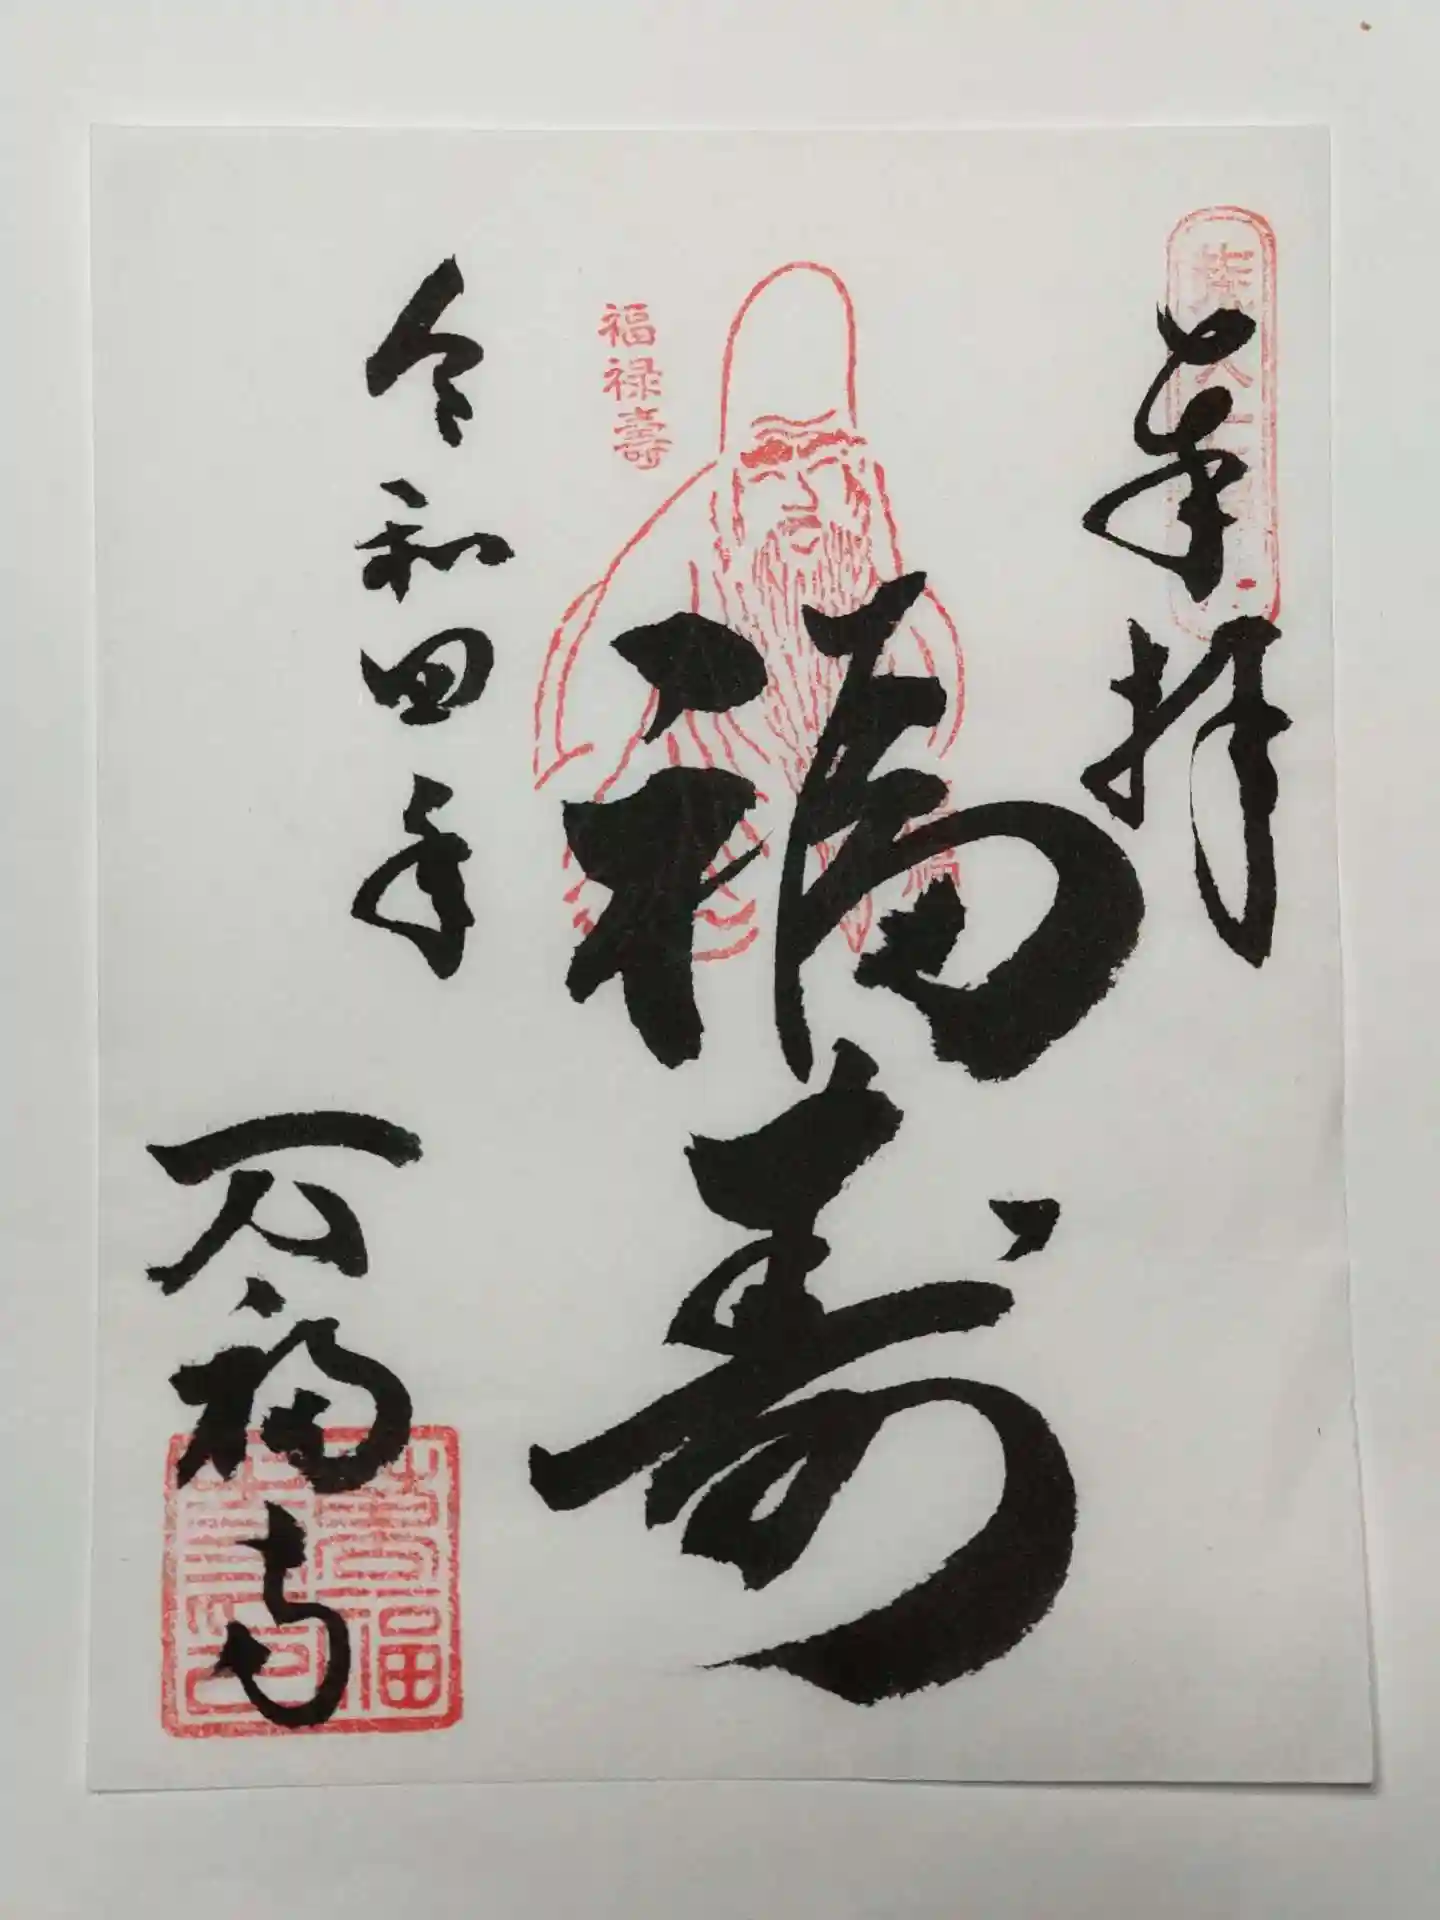 奉拝
福寿
福禄壽
令和四年
万福寺